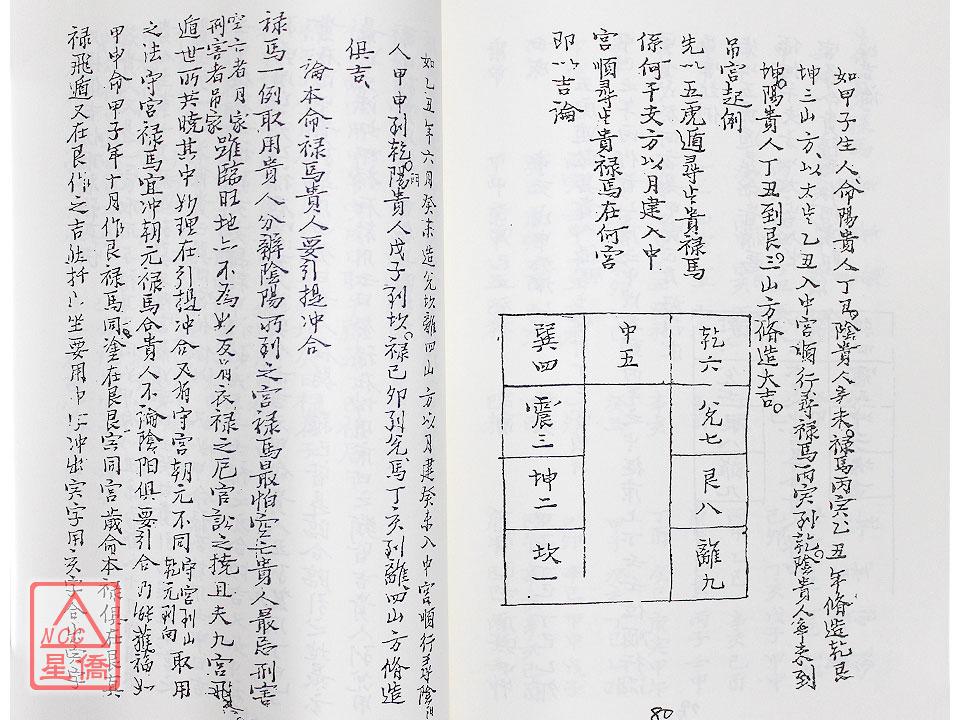 如甲子生人命陽貴人丁丑陰貴人辛未祿馬丙寅乙丑年修造乾艮
坤三山方以太歲乙丑入中宮順行尋祿馬丙寅到乾陰貴人辛未到
坤陽貴人丁丑到艮三山方修造大吉
吊宮起例
先以五虎遁尋出貴祿馬
係何干支方以月建入中
宮順尋出貴祿馬在何宮
即以吉論
乾六 兌七 艮八 離九
中五
巽四 震三 坤二 坎一
80
如乙丑年六月癸未造兌坎離四山方以月建癸未入中宮順行尋陰陽
人甲申到乾陽貴人戊子到坎祿己卯到兌馬丁亥到離四山方修造
俱吉
論本命祿馬貴人要引提冲合
祿馬一例取用貴人分辨陰陽所到之宮祿馬最怕空亡貴人最忌刑害
空亡者月家
刑害者吊家
雖臨旺地亦不為妙反有衣祿之厄官訟之撓且夫九宮飛
遁世所共曉其中妙理在引提冲合又有守宮朝元不同
守宮到山
朝元到向
取用
之法守宮祿馬宜冲朝元祿馬合貴人不論陰陽俱要引合乃能獲福如
甲申命甲子年十月作艮祿馬同塗在艮艮宮同宮歲命本祿俱在艮真
祿飛遁又在艮作之吉
坐要用申字冲出寅字用亥字合出寅字
星僑
NCC